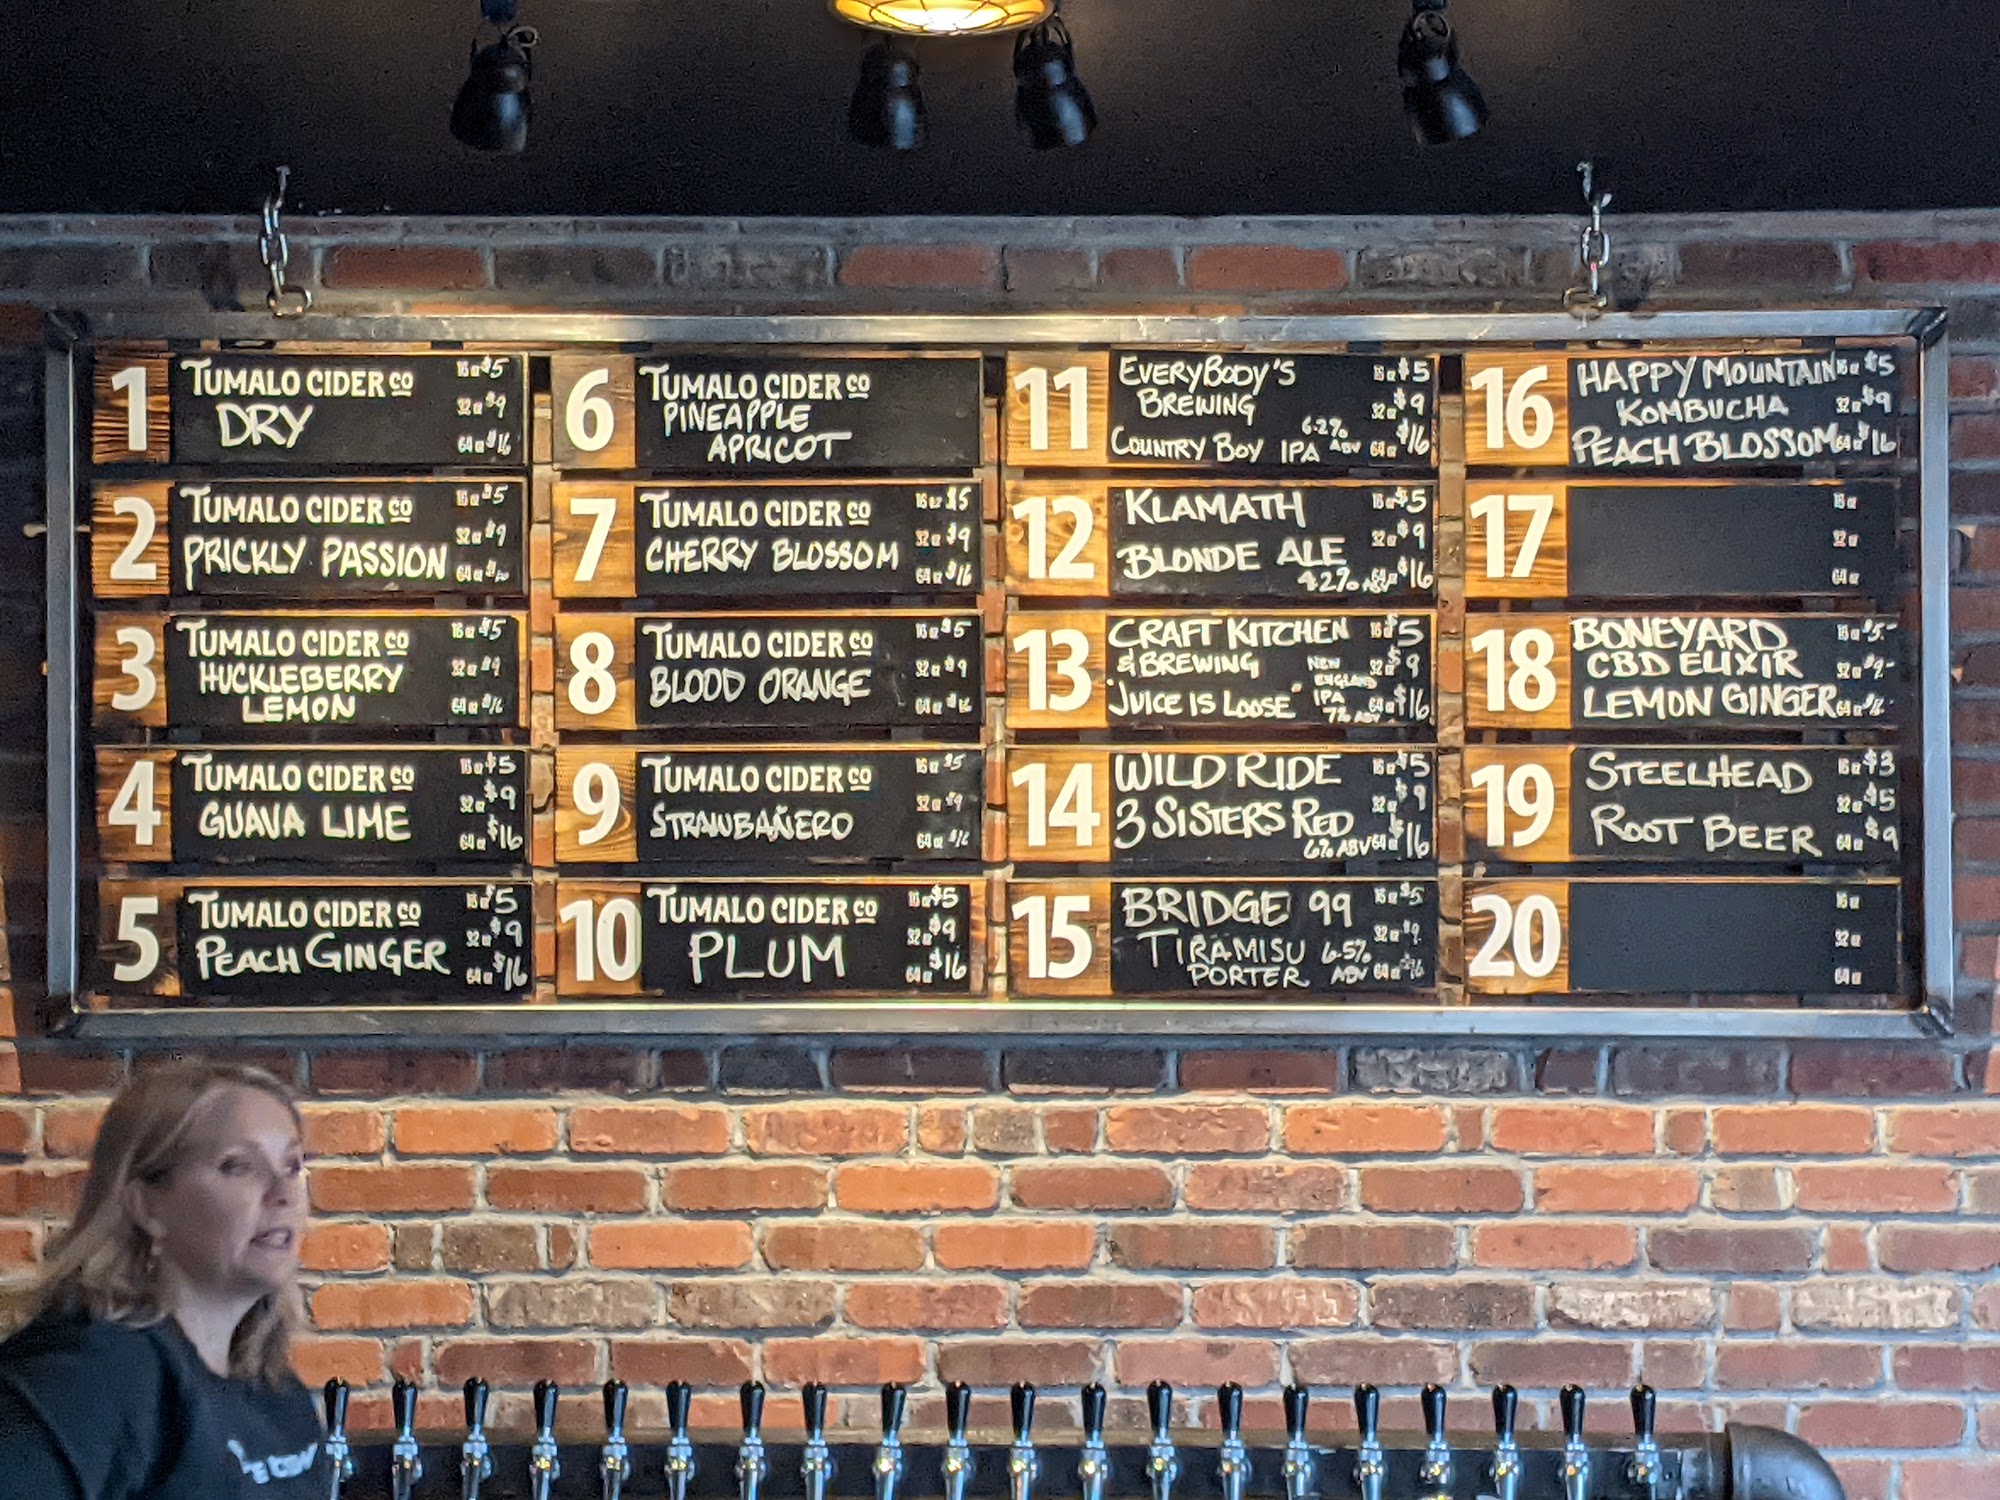 1
TUMALO CIDER CO
DRY
16 oz $5
32 oz $9
64 oz $16
2
TUMALO CIDER CO
PRICKLY PASSION
16 oz $5
32 oz $9
64 oz
3
TUMALO CIDER CO
HUCKLEBERRY
LEMON
16 oz $5
32 oz $9
64 oz $16
4
TUMALO CIDER CO
GUAVA LIME
16 oz $5
32 oz $9
64 oz $16
5
TUMALO CIDER CO
PEACH GINGER
16 oz $5
32 oz $9
64 oz $16
6
TUMALO CIDER CO
PINEAPPLE
APRICOT
7
TUMALO CIDER CO
CHERRY BLOSSOM
16 oz $5
32 oz $9
64 oz $16
8
TUMALO CIDER CO
BLOOD ORANGE
16 oz $5
32 oz $9
64 oz $16
9
TUMALO CIDER CO
STRAWBAÑERO
16 oz $5
32 oz $9
64 oz $16
10
TUMALO CIDER CO
PLUM
16 oz $5
32 oz $9
64 oz $16
11
EVERYBODY'S
BREWING
COUNTRY BOY IPA 6.2% ABV
16 oz $5
32 oz $9
64 oz $16
12
KLAMATH
BLONDE ALE
4.2% ABV
16 oz $5
32 oz $9
64 oz $16
13
CRAFT KITCHEN
& BREWING
"JUICE IS LOOSE"
NEW
ENGLAND
IPA
7% ABV
16 oz $5
32 oz $9
64 oz $16
14
WILD RIDE
3 SISTERS RED
6% ABV
16 oz $5
32 oz $9
64 oz $16
15
BRIDGE 99
TIRAMISU 6.5%
PORTER ABV
16 oz $5
32 oz $9
64 oz $16
16
HAPPY MOUNTAIN
KOMBUCHA
PEACH BLOSSOM
16 oz $5
32 oz $9
64 oz $16
17
16 oz
32 oz
64 oz
18
BONEYARD
CBD ELIXIR
LEMON GINGER
16 oz $5-
32 oz $9-
64 oz $16-
19
STEELHEAD
ROOT BEER
16 oz $3
32 oz $5
64 oz $9
20
16 oz
32 oz
64 oz